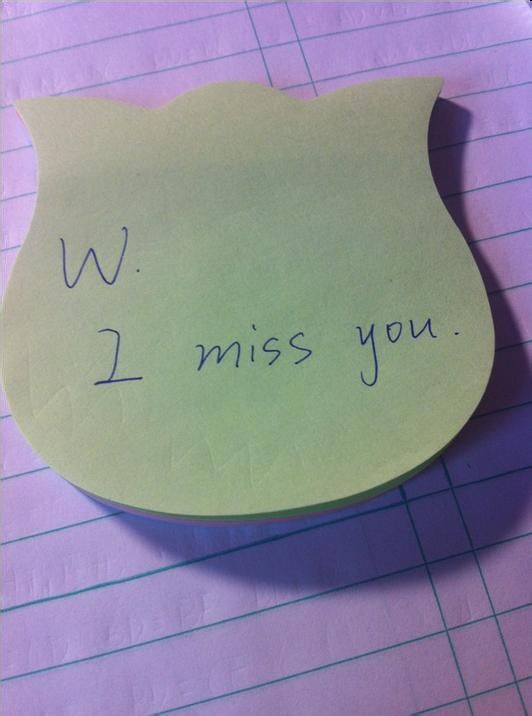 W.
I miss you.